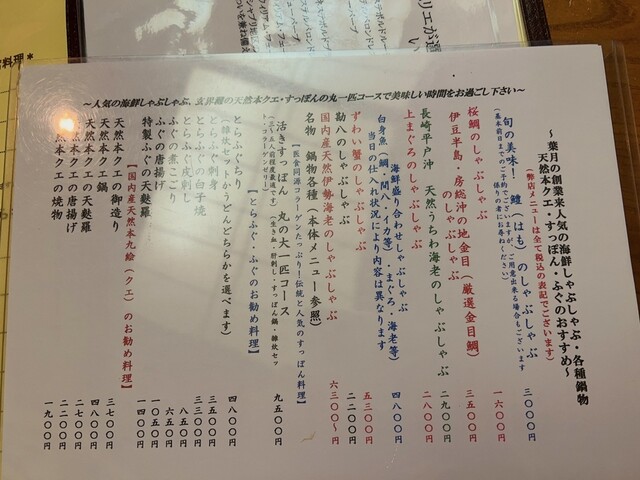 ～葉月の創業来人気の海鮮しゃぶしゃぶ・各種鍋物
天然本クエ・すっぽん・ふぐのおすすめ～
(弊店メニューは全て税込の表記でございます)
旬の美味！ 鱧(はも)のしゃぶしゃぶ 三〇〇〇円
(基本前日までのご予約でございますが、ご用意出来る場合もございます
係りの者にお尋ねください)
桜鯛のしゃぶしゃぶ 一六〇〇円
伊豆半島・房総沖の地金目(厳選金目鯛)
のしゃぶしゃぶ 三五〇〇円
長崎平戸沖 天然うちわ海老のしゃぶしゃぶ 二九〇〇円
上まぐろのしゃぶしゃぶ 二八〇〇円
海鮮盛り合わせしゃぶしゃぶ
白身魚(鯛・間八・イカ等)まぐろ、海老等) 四八〇〇円
当日の仕入れ状況により内容は異なります
ずわい蟹のしゃぶしゃぶ 五三〇〇円
勘八のしゃぶしゃぶ 二二〇〇円
国内産天然伊勢海老のしゃぶしゃぶ 六三〇〇～円
名物 鍋物各種(本体メニュー参照)
【医食同源コラーゲンたっぷり！伝統と人気のすっぽん料理】
活きすっぽん 丸の大一匹コース 九五〇〇円
(三～五人前程度最適です)(生き血・肝刺し・すっぽん鍋・雑炊セット、コラーゲンゼリー)
【とらふぐ・ふぐのお勧め料理】
とらふぐちり 四八〇〇円
(雑炊セットかうどんどちらかを選べます)
とらふぐ刺身 三五〇〇円
とらふぐの白子焼 三三〇〇円
とらふぐ皮刺し 八五〇円
ふぐの煮こごり 六五〇円
ふぐの唐揚げ 一〇五〇円
特製ふぐの天麩羅 一四〇〇円
【国内産天然本九絵(クエ)のお勧め料理】
天然本クエの御造り 三七〇〇円
天然本クエ鍋 四八〇〇円
天然本クエの天麩羅 二七〇〇円
天然本クエの唐揚げ 二二〇〇円
天然本クエの焼物 一九〇〇円
～人気の海鮮しゃぶしゃぶ、玄界灘の天然本クエ・すっぽんの丸一匹コースで美味しい時間をお過ごし下さい～